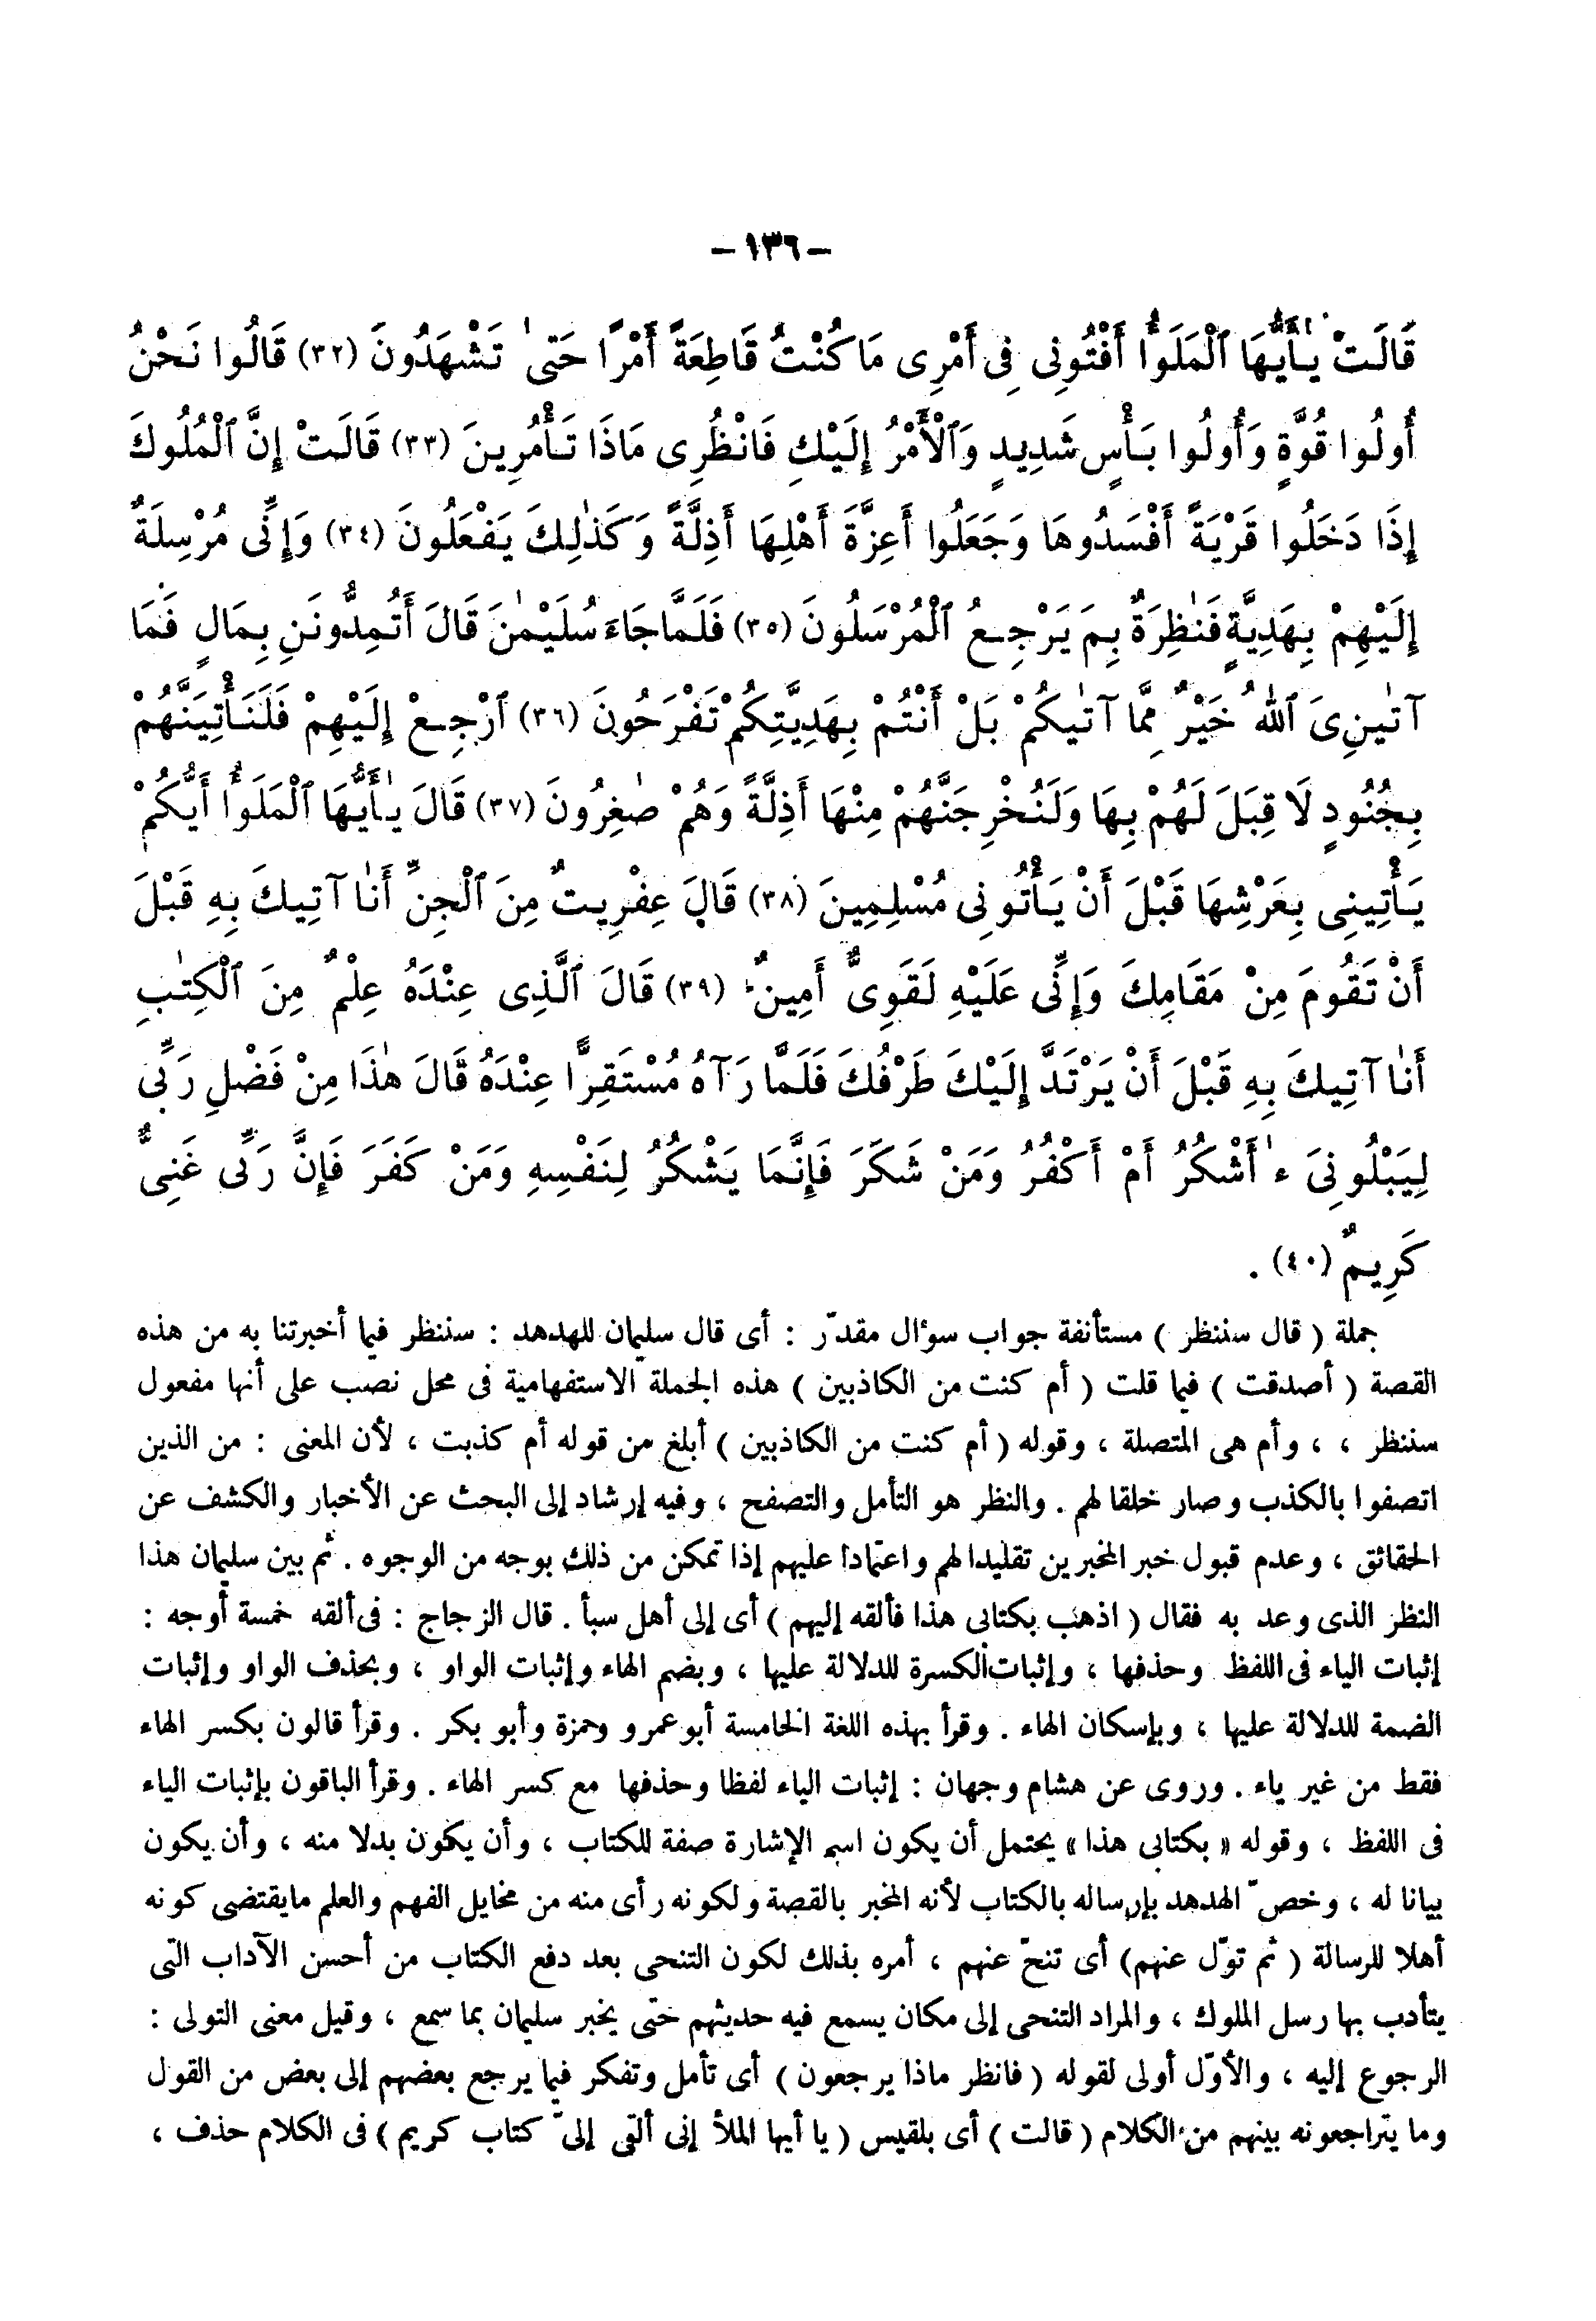 – ١٣٦ –
قَالَتْ يٰـأَيُّهَا ٱلْمَلَوُا أَفْتُونِى فِى أَمْرِى مَا كُنْتُ قَاطِعَةً أَمْرًا حَتىٰ تَشْهَدُونَ (٣٢) قَالُوا نَحْنُ
أُولُوا قُوَّةٍ وَأُولُوا بَأْسٍ شَدِيدٍ وَٱلْأَمْرُ إِلَيْكِ فَانْظُرِى مَاذَا تَأْمُرِينَ (٣٣) قَالَتْ إِنَّ ٱلْمُلُوكَ
إِذَا دَخَلُوا قَرْيَةً أَفْسَدُوهَا وَجَعَلُوا أَعِزَّةَ أَهْلِهَا أَذِلَّةً وَكَذٰلِكَ يَفْعَلُونَ (٣٤) وَإِنِّى مُرْسِلَةٌ
إِلَيْهِمْ بِهَدِيَّةٍ فَنٰظِرَةٌ بِمَ يَرْجِعُ ٱلْمُرْسَلُونَ (٣٥) فَلَمَّا جَاءَ سُلَيْمٰنَ قَالَ أَتُمِدُّونَنِ بِمَالٍ فَمَا
آتٰينِىَ ٱللهُ خَيْرٌ مِمَّا آتٰيكُمْ بَلْ أَنْتُمْ بِهَدِيَّتِكُمْ تَفْرَحُونَ (٣٦) ٱرْجِعْ إِلَيْهِمْ فَلَنَأْتِيَنَّهُمْ
بِجُنُودٍ لَا قِبَلَ لَهُمْ بِهَا وَلَنُخْرِجَنَّهُمْ مِنْهَا أَذِلَّةً وَهُمْ صٰغِرُونَ (٣٧) قَالَ يٰـأَيُّهَا ٱلْمَلَوُا أَيُّكُمْ
يَأْتِينِى بِعَرْشِهَا قَبْلَ أَنْ يَأْتُونِى مُسْلِمِينَ (٣٨) قَالَ عِفْرِيتٌ مِنَ ٱلْجِنِّ أَنٰا آتِيكَ بِهِ قَبْلَ
أَنْ تَقُومَ مِنْ مَقَامِكَ وَإِنِّى عَلَيْهِ لَقَوِىٌّ أَمِينٌ (٣٩) قَالَ ٱلَّذِى عِنْدَهُ عِلْمٌ مِنَ ٱلْكِتٰبِ
أَنٰا آتِيكَ بِهِ قَبْلَ أَنْ يَرْتَدَّ إِلَيْكَ طَرْفُكَ فَلَمَّا رَآهُ مُسْتَقِرًّا عِنْدَهُ قَالَ هٰذَا مِنْ فَضْلِ رَبِّى
لِيَبْلُونِىَ ءأَشْكُرُ أَمْ أَكْفُرُ وَمَنْ شَكَرَ فَإِنَّمَا يَشْكُرُ لِنَفْسِهِ وَمَنْ كَفَرَ فَإِنَّ رَبِّى غَنِىٌّ
كَرِيمٌ (٤٠) .
جملة ( قال سننظر ) مستأنفة جواب سؤال مقدّر : أى قال سليمان للهدهد : سننظر فيما أخبرتنا به من هذه
القصة ( أصدقت ) فيما قلت ( أم كنت من الكاذبين ) هذه الجملة الاستفهامية فى محل نصب على أنها مفعول
سننظر ، ، وأم هى المتصلة ، وقوله ( أم كنت من الكاذبين ) أبلغ من قوله أم كذبت ، لأن المعنى : من الذين
اتصفوا بالكذب وصار خلقا لهم . والنظر هو التأمل والتصفح ، وفيه إرشاد إلى البحث عن الأخبار والكشف عن
الحقائق ، وعدم قبول خبر المخبرين تقليدا لهم واعتمادا عليهم إذا تمكن من ذلك بوجه من الوجوه . ثم بين سليمان هذا
النظر الذى وعد به فقال ( اذهب بكتابى هذا فألقه إليهم ) أى إلى أهل سبأ . قال الزجاج : فى ألقه خمسة أوجه :
إثبات الياء فى اللفظ وحذفها ، وإثبات الكسرة للدلالة عليها ، وبضم الهاء وإثبات الواو ، وبحذف الواو وإثبات
الضمة للدلالة عليها ، وبإسكان الهاء . وقرأ بهذه اللغة الخامسة أبو عمرو وحمزة وأبو بكر . وقرأ قالون بكسر الهاء
فقط من غير ياء . وروى عن هشام وجهان : إثبات الياء لفظا وحذفها مع كسر الهاء . وقرأ الباقون بإثبات الياء
فى اللفظ ، وقوله « بكتابى هذا » يحتمل أن يكون اسم الإشارة صفة للكتاب ، وأن يكون بدلا منه ، وأن يكون
بيانا له ، وخصّ الهدهد بإرساله بالكتاب لأنه المخبر بالقصة ولكونه رأى منه من مخايل الفهم والعلم مايقتضى كونه
أهلا للرسالة ( ثم تولّ عنهم) أى تنحّ عنهم ، أمره بذلك لكون التنحى بعد دفع الكتاب من أحسن الآداب التى
يتأدب بها رسل الملوك ، والمراد التنحى إلى مكان يسمع فيه حديثهم حتى يخبر سليمان بما سمع ، وقيل معنى التولى :
الرجوع إليه ، والأوّل أولى لقوله ( فانظر ماذا يرجعون ) أى تأمل وتفكر فيما يرجع بعضهم إلى بعض من القول
وما يتراجعونه بينهم من الكلام ( قالت ) أى بلقيس ( يا أيها الملأ إنى ألقى إلىّ كتاب كريم ) فى الكلام حذف ،